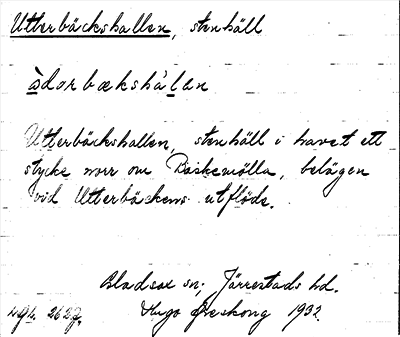 Utterbäckshallen, stenhäll
àdorbækshálen
Utterbäckshallen, stenhäll i havet ett
stycke norr om Baskemölla, belägen
vid Utterbäckens utflöde.
Bladsax sn; Järrestads hd.
Hugo Areskoug 1932.